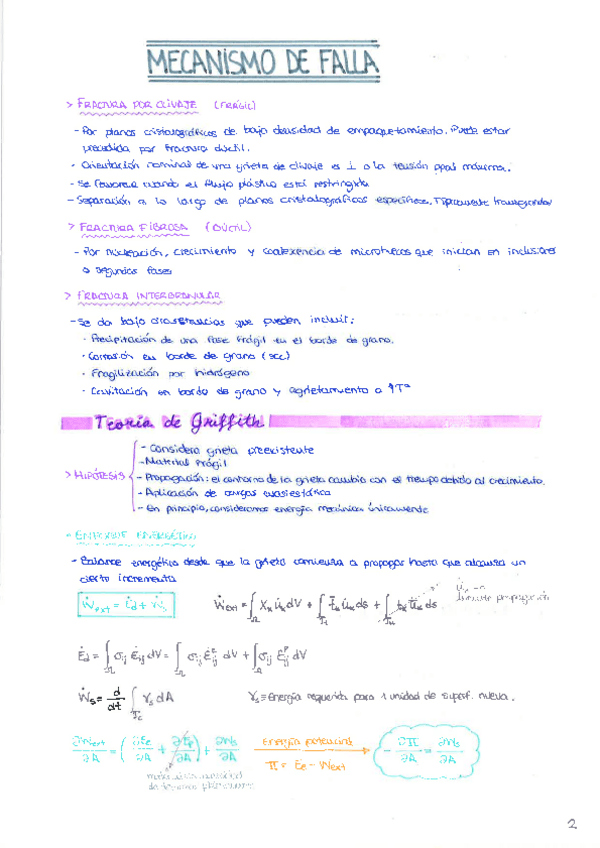 MECANISMO DE FALLA
> FRACTURA POR CLIVAJE (FRÁGIL)
- Por planos cristalográficos de bajo densidad de empaquetamiento. Puede estar
precedida por fractura dúctil.
- Orientación nominal de una grieta de clivaje es ⊥ a la tensión ppal máxima.
- Se favorece cuando el flujo plástico está restringido
- Separación a lo largo de planos cristalográficos específicos. Típicamente transgranular
> FRACTURA FIBROSA (DÚCTIL)
- Por nucleación, crecimiento y coalexencia de microhuecos que inician en inclusiones
o segundas fases
> FRACTURA INTERGRANULAR
- Se da bajo circunstancias que pueden incluir:
· Precipitación de una fase frágil en el borde de grano.
· Corrosión en borde de grano (SCC)
· Fragilización por hidrógeno
· Cavitación en borde de grano y agrietamiento a ↑Tª
Teoría de Griffith
> HIPÓTESIS
- Considera grieta preexistente
- Material frágil
- Propagación: el contorno de la grieta cambia con el tiempo debido al crecimiento.
- Aplicación de cargas cuasiestática
- En principio, consideramos energía mecánica únicamente
- ENFOQUE ENERGÉTICO
- Balance energético desde que la grieta comienza a propagar hasta que alcanza un
cierto incremento
Ẇext = Ėd + Ẇs Ẇext = ∫Ω Xk u̇k dV + ∫ t̄k u̇k ds + ∫ tk u̇k ds
durante propagación
Ėd = ∫Ω σij ε̇ij dV = ∫Ω σij ε̇ij^e dV + ∫Ω σij ε̇ij^p dV
Ẇs = d/dt ∫ γs dA γs ≡ Energía requerida para 1 unidad de superf. nueva.
∂Wext/∂A = (∂Ee/∂A + ∂Ep/∂A) + ∂Ws/∂A Energía potencial Π = Ee - Wext - ∂Π/∂A = ∂Ws/∂A
2